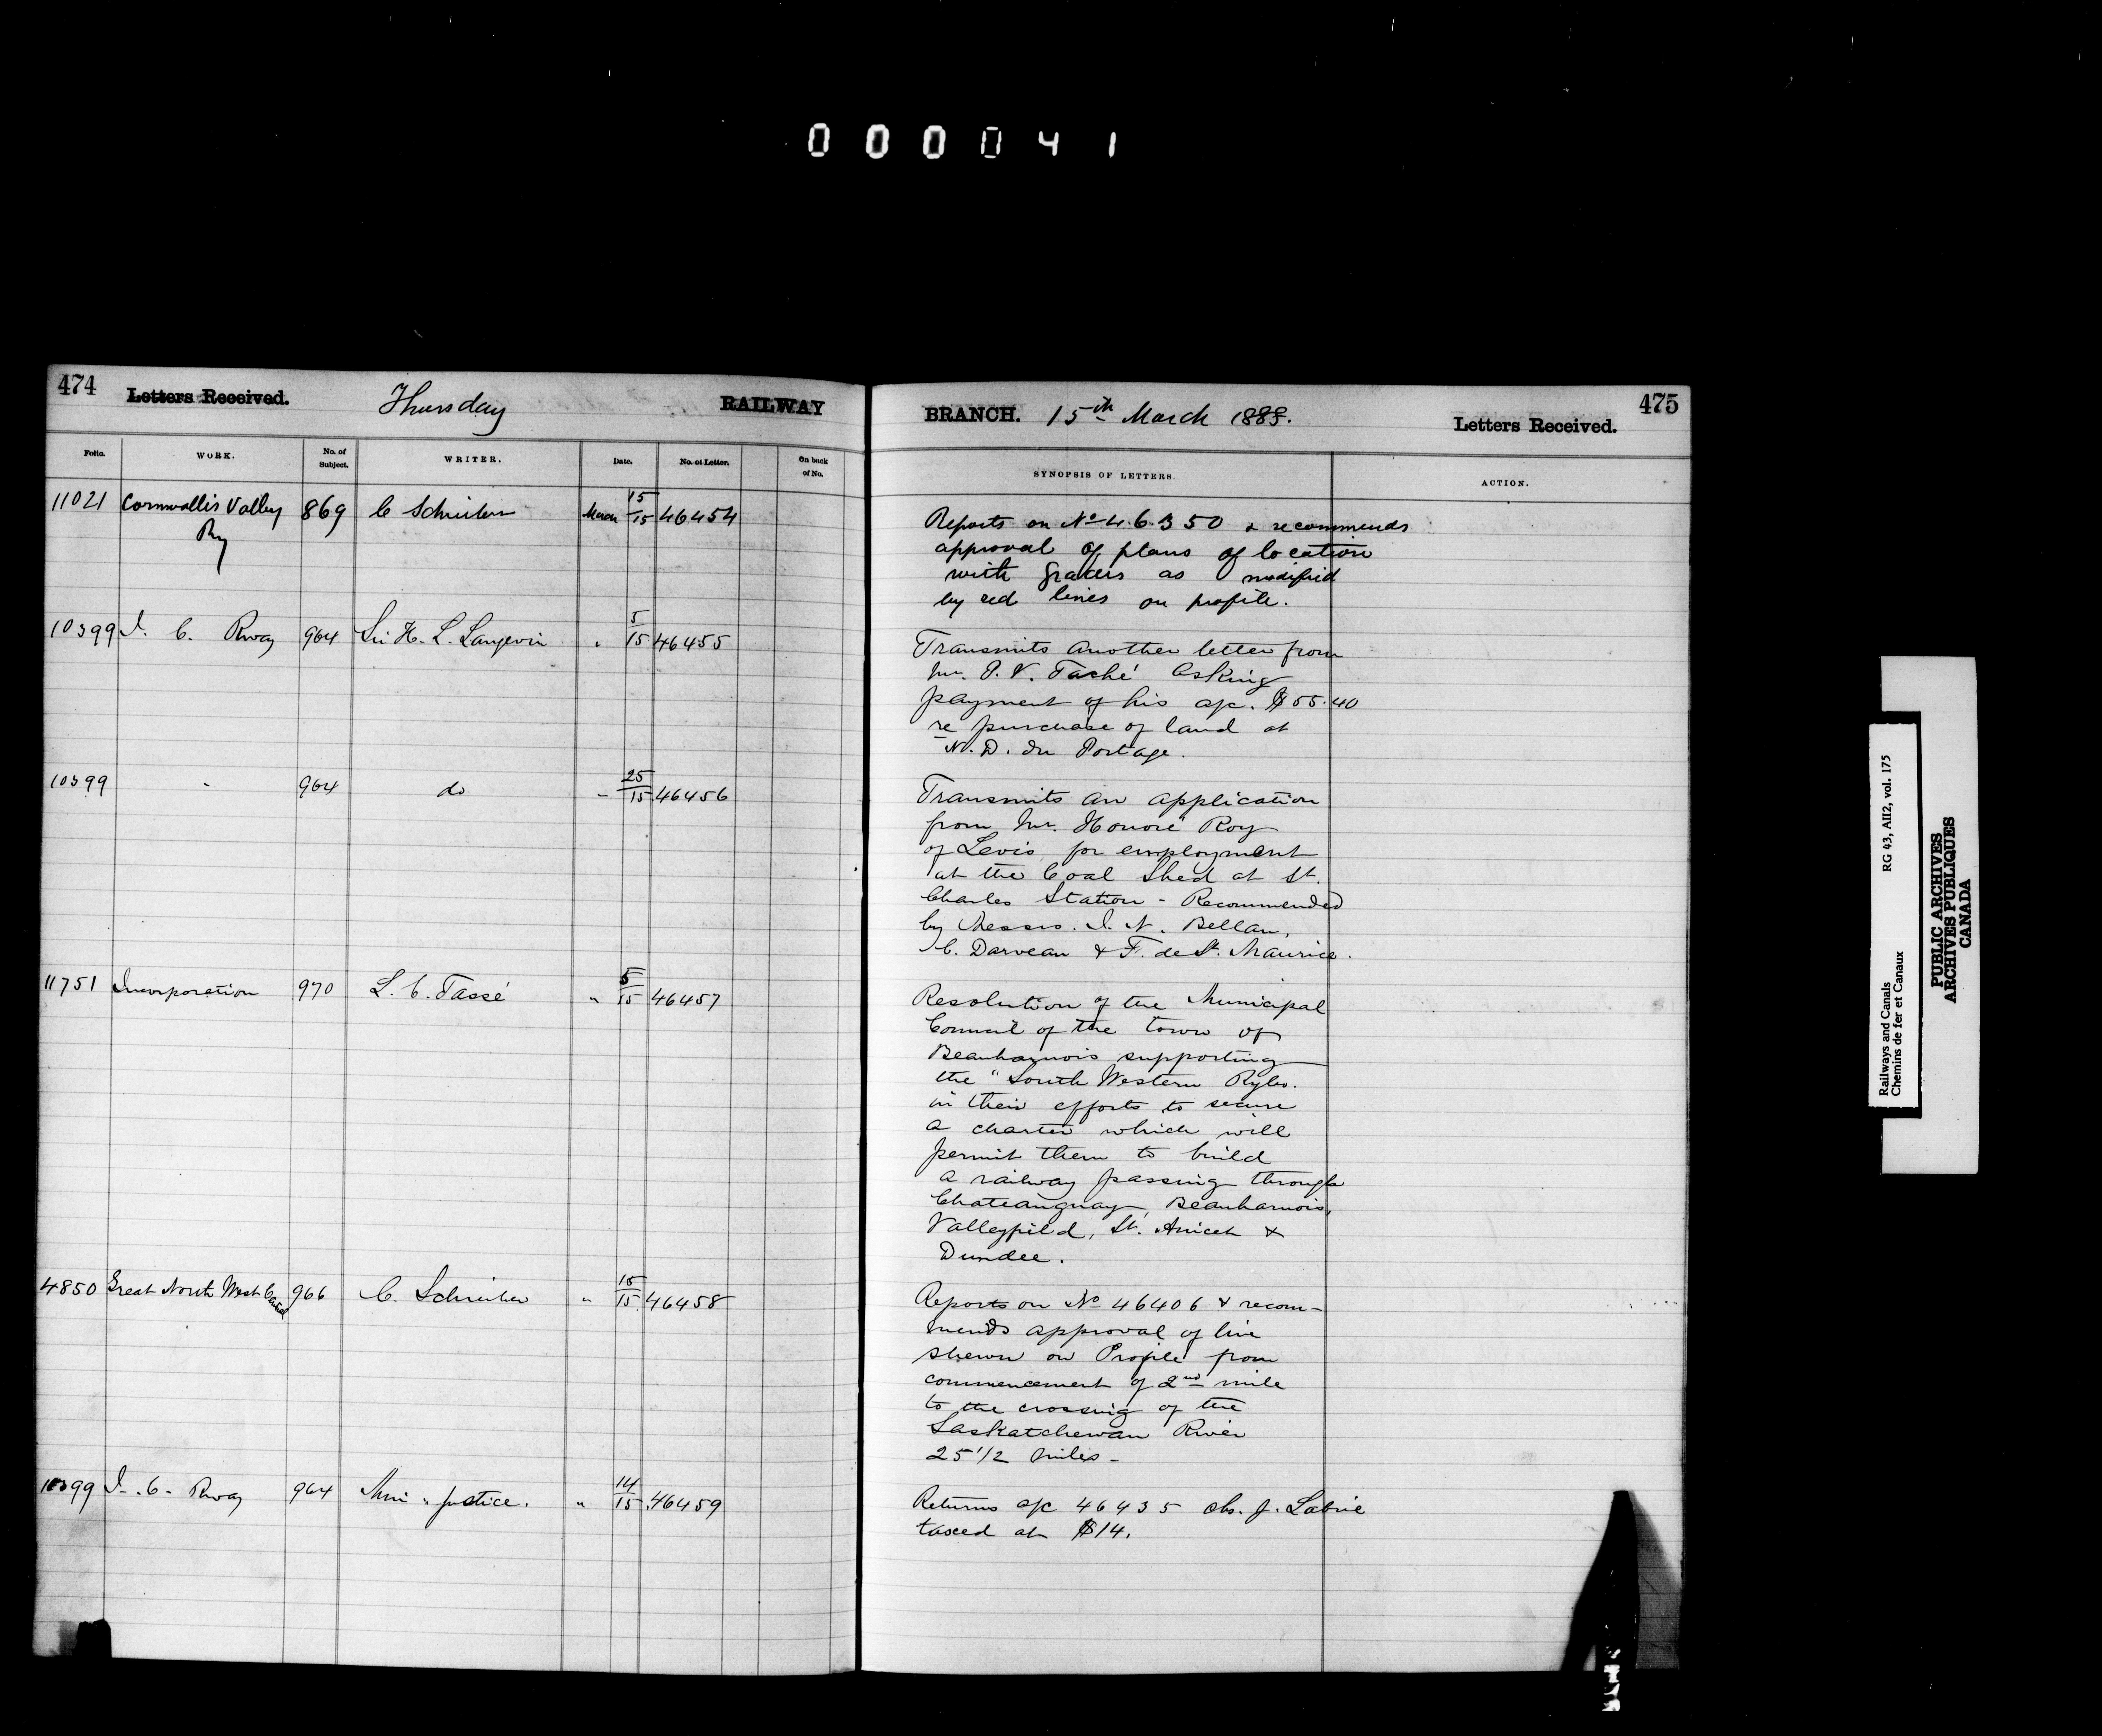 000041
474 Letters Received. Thursday RAILWAY
Folio. WORK. No. of Subject. WRITER. Date. No. of Letter. On back of No.
11021 Cornwallis Valley Ry 869 C Schreiber March 15/15 46454
10399 I. C. Rway 964 Sir H. L. Langevin " 5/15 46455
10399 " 964 do " 25/15 46456
11751 Incorporation 970 L. C. Tassé " 5/15 46457
4850 Great North West Central 966 C. Schreiber " 15/15 46458
10399 I. C. Rway 964 Min " Justice. " 14/15 46459
BRANCH. 15th March 1888. Letters Received. 475
SYNOPSIS OF LETTERS. ACTION.
Reports on No 46350 & recommends
approval of plans of location
with grades as modified
by red lines on profile.
Transmits another letter from
Mr. P. V. Taché asking
payment of his a/c. $55.40
re purchase of land at
N. D. du Portage.
Transmits an application
from Mr. Honoré Roy
of Levis for employment
at the Coal Shed at St.
Charles Station - Recommended
by Messrs. I. N. Belleau,
C. Darveau & F. de St. Maurice.
Resolution of the Municipal
Council of the town of
Beauharnois supporting
the "South Western Ryco.
in their efforts to secure
a charter which will
permit them to build
a railway passing through
Chateauguay, Beauharnois,
Valleyfield, St. Anicet &
Dundee.
Reports on No 46406 & recom-
mends approval of line
shewn on Profile from
commencement of 2nd mile
to the crossing of the
Saskatchewan River
25 1/2 miles -
Returns a/c 46435 Chs. J. Labrie
taxed at $14.
Railways and Canals RG 43, AII2, vol. 175
Chemins de fer et Canaux
PUBLIC ARCHIVES
ARCHIVES PUBLIQUES
CANADA